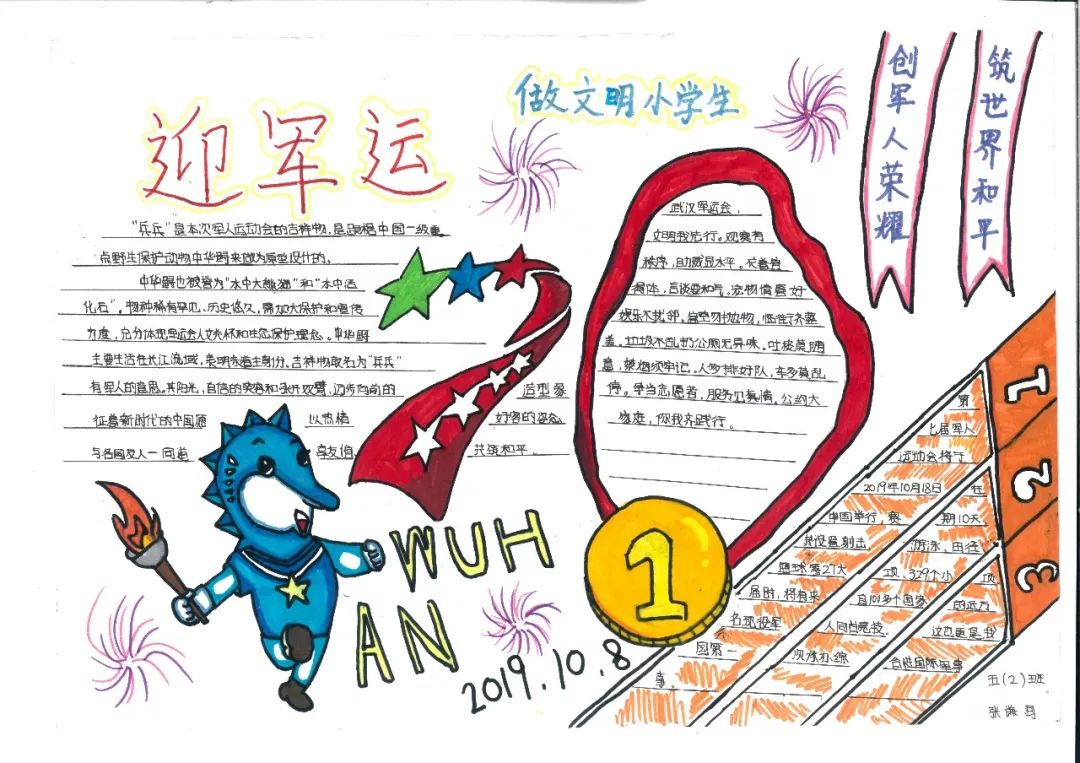 迎军运
做文明小学生
创军人荣耀
筑世界和平
"兵兵"是本次军人运动会的吉祥物,是跟据中国一级重
点野生保护动物中华鲟来做为原型设计的,
中华鲟也被誉为"水中大熊猫"和"水中活
化石"。物种稀有罕见、历史悠久,需加大保护和宣传
力度,充分体现军运会人文关怀和生态保护理念。中华鲟
主要生活在长江流域,表明东道主身份。吉祥物取名为"兵兵"
有军人的意思。其阳光,自信的笑容和张开双臂,迈步向前的 造型象
征着新时代的中国愿 以热情 好客的姿态
与各国友人一同道 喜友谊, 共筑和平。
武汉军运会,
文明我先行。观赛有
秩序,助威显水平。衣着宜
得体,言谈要和气。宠物情喜好
娱乐不扰邻。高空勿抛物,
垃圾不乱扔公厕无异味。吐痰莫随
意,禁烟须牢记。人多排好队,车多莫乱
停。争当志愿者,服务见真情。公约大
家庭,你我齐践行。
WUH
AN
2019.10.8
1
1
2
3
第
七届军人
运动会将于
2019年10月18日 在
中国举行,赛 期10天
共设置射击、 游泳、田径、
篮球等27大 项、329个小 项
届时,将有来 自100多个国家 的近万
名现役军 人同台竞技, 这也更是我
国第一 次承办综 合性国际军事
事。
五(2)班
张